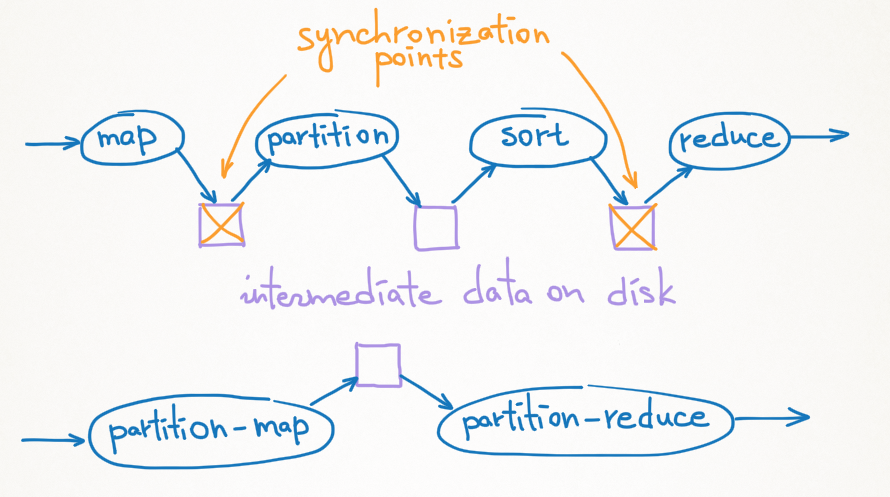 synchronization
points
map
partition
sort
reduce
intermediate data on disk
partition-map
partition-reduce